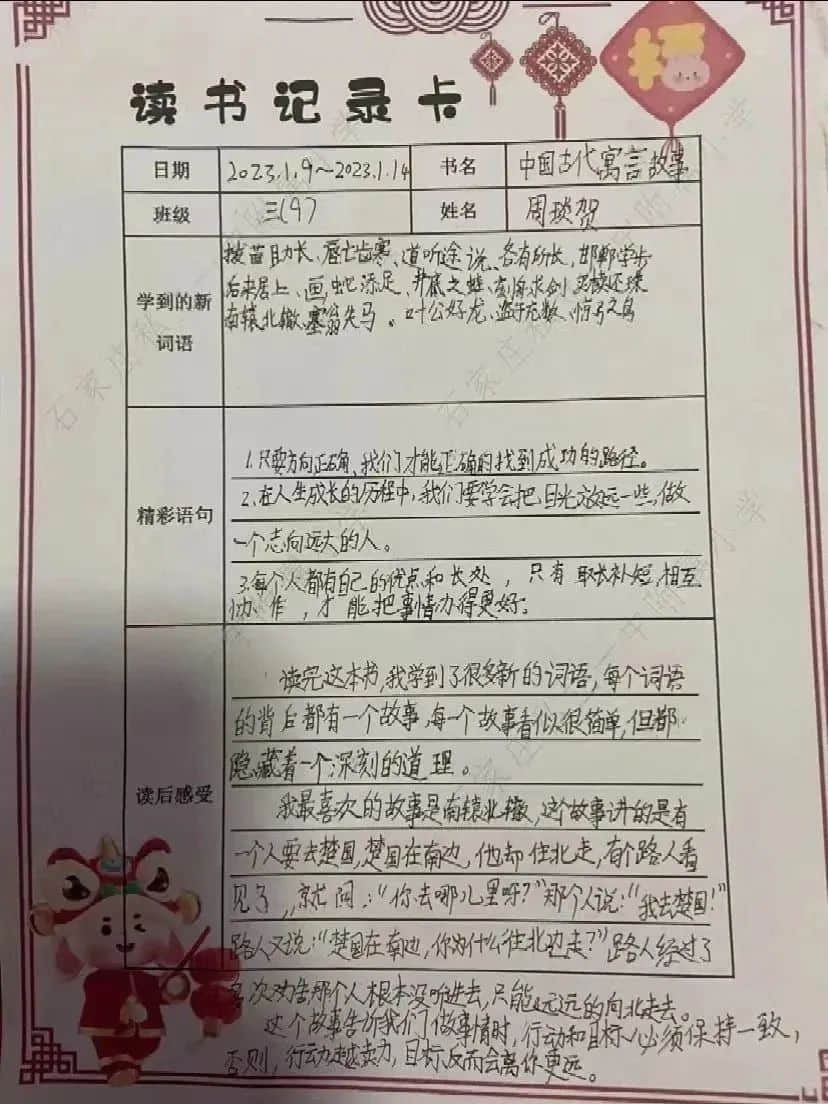 福
读书记录卡
日期 2023.1.9～2023.1.14 书名 中国古代寓言故事
班级 三(9) 姓名 周琰贺
学到的新词语
拔苗助长、唇亡齿寒、道听途说、各有所长、邯郸学步
后来居上、画蛇添足、井底之蛙、刻舟求剑、买椟还珠
南辕北辙、塞翁失马。叶公好龙、滥竽充数、惊弓之鸟
精彩语句
1.只要方向正确,我们才能正确的找到成功的路径。
2.在人生成长的历程中,我们要学会把目光放远一些,做
一个志向远大的人。
3.每个人都有自己的优点和长处,只有取长补短,相互
协作,才能把事情办得更好。
读后感受
读完这本书,我学到了很多新的词语,每个词语
的背后都有一个故事,每一个故事看似很简单,但都
隐藏着一个深刻的道理。
我最喜欢的故事是南辕北辙,这个故事讲的是有
一个人要去楚国,楚国在南边,他却住北走,有个路人看
见了,就问:“你去哪儿里呀?”那个人说:“我去楚国!”
路人又说:“楚国在南边,你为什么往北边走?”路人经过了
多次劝告那个人根本没听进去,只能远远的向北走去。
这个故事告诉我们做事情时,行动和目标必须保持一致,
否则,行动越卖力,目标反而会离你更远。
石家庄私立一中附属小学